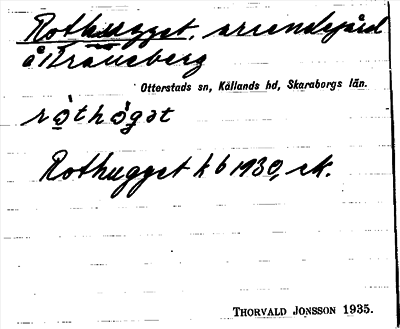 Rothugget, arrendegård
å Traneberg
Otterstads sn, Kållands hd, Skaraborgs län.
ròthógət
Rothugget kb 1930, ek.
THORVALD JONSSON 1935.